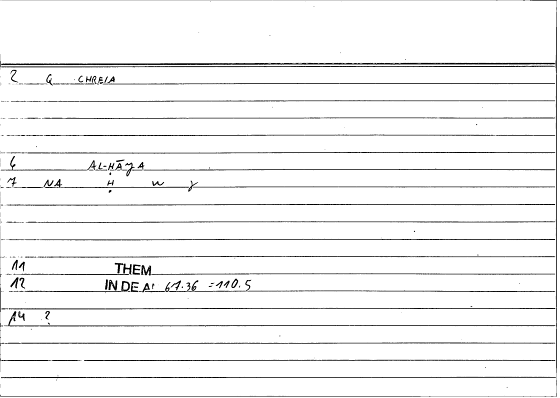 2 G CHREIA
6 AL-ḤĀǦA
7 NA Ḥ W Ǧ
11 THEM
12 IN DE A! 67.36 =110.5
14 ?